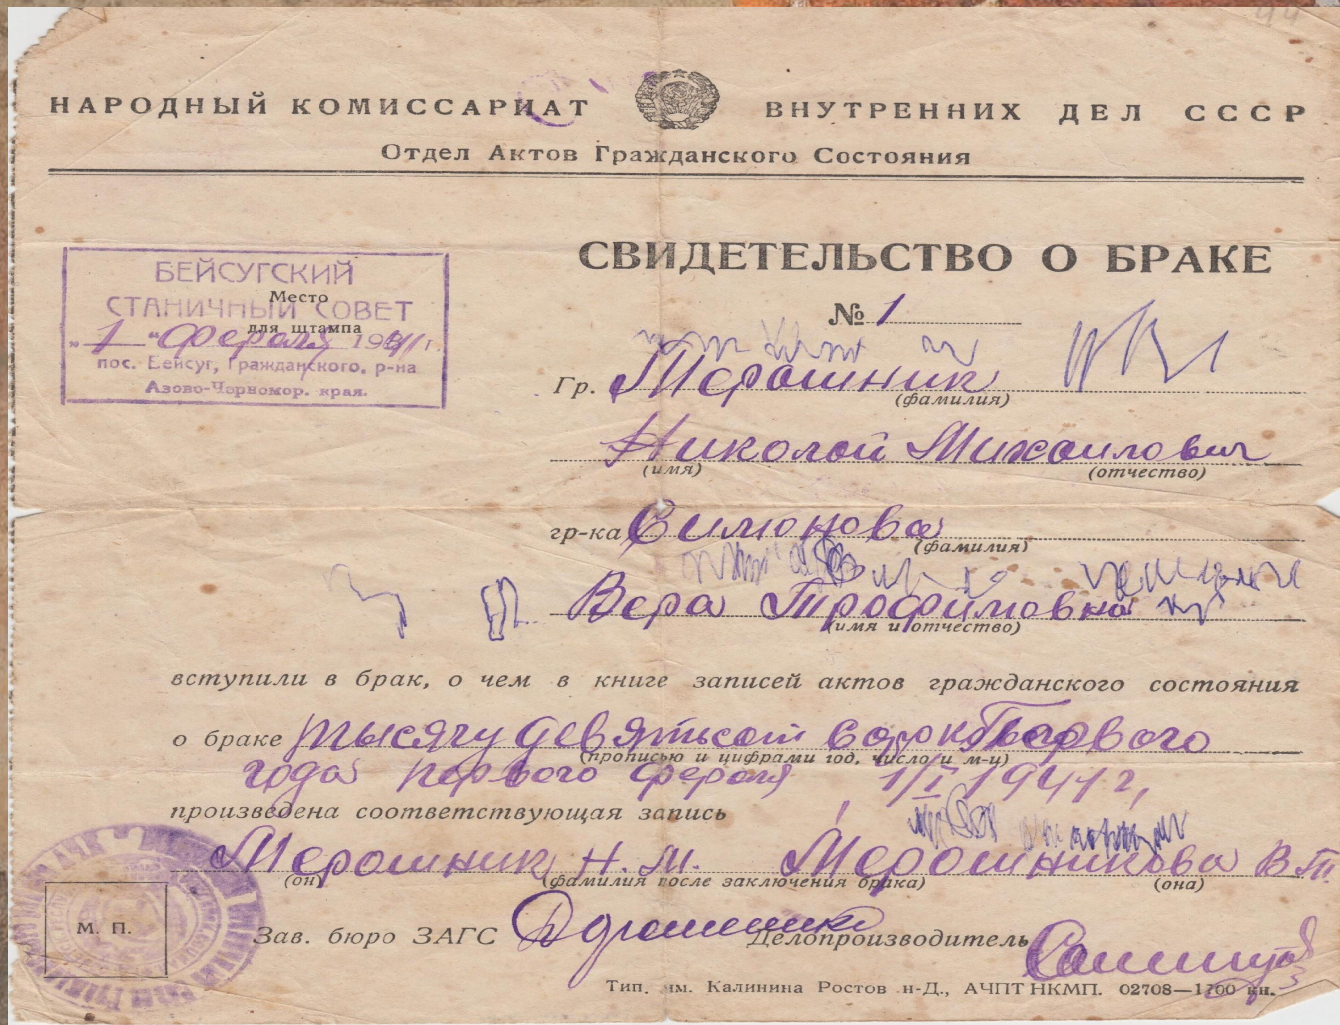 НАРОДНЫЙ КОМИССАРИАТ ВНУТРЕННИХ ДЕЛ СССР
Отдел Актов Гражданского Состояния
СВИДЕТЕЛЬСТВО О БРАКЕ
№ 1
БЕЙСУГСКИЙ
СТАНИЧНЫЙ СОВЕТ
Место
для штампа
"1" Фероля 1941 г.
пос. Бейсуг, Гражданского, р-на
Азово-Черномор. края.
Гр. Мерошник
(фамилия)
Николай Михаилович
(имя) (отчество)
гр-ка Симонова
(фамилия)
Вера Трофимовна
(имя и отчество)
вступили в брак, о чем в книге записей актов гражданского состояния
о браке тысячу девятьсот сорок Первого
(прописью и цифрами год, число и м-ц)
года первого фероля 1/I 1941 г,
произведена соответствующая запись
Мерошник Н. М. Мерошникова В Т.
(он) (фамилия после заключения брака) (она)
М. П.
Зав. бюро ЗАГС Делопроизводитель
Тип. им. Калинина Ростов н-Д., АЧПТ НКМП. 02708—1200 кн.